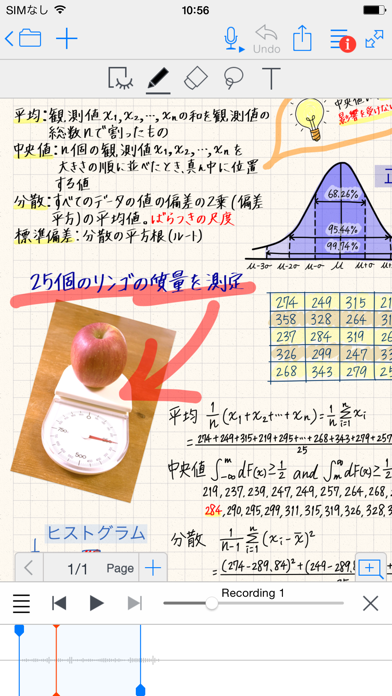 SIMなし 10:56
Undo
T
平均:観測値x1,x2,…,xnの和を観測値の
総数nで割ったもの
中央値:n個の観測値x1,x2,…,xnを
大きさの順に並べたとき,真ん中に位置
する値
分散:すべてのデータの値の偏差の2乗(偏差
平方)の平均値。ばらつきの尺度
標準偏差:分散の平方根(ルート)
中央値
影響を受けな
68.26%
95.44%
99.74%
μ-3σ μ-2σ μ-σ μ μ+σ
25個のリンゴの質量を測定
274 249 315 21
358 328 264 31
237 284 319 26
326 299 247 33
268 343 279 25
平均 1/n (x1+x2+…+xn)=1/n Σ xi
n
i=1
=274+249+315+219+295+…+268+343+279+257
25
中央値 ∫ m -∞ dF(x)≥1/2 and ∫ ∞ m dF(x)≥1/2
219,237,239,247,249,257,264,268,
284,290,295,299,311,315,319,326,328,3
ヒストグラム
分散 1/n-1 Σ (xi-x̄)²
n
i=1
=(274-289.84)²+(249-289.8
1/1 Page
Recording 1